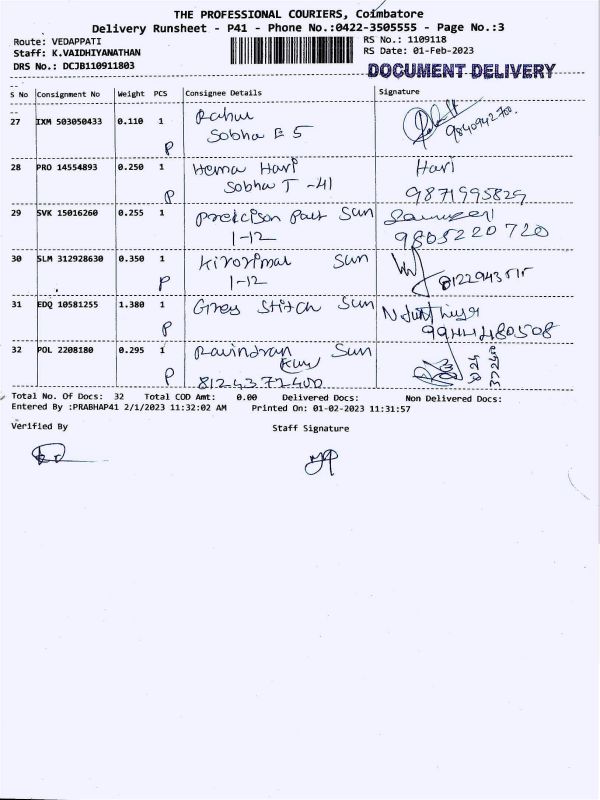 THE PROFESSIONAL COURIERS, Coimbatore
Delivery Runsheet - P41 - Phone No.:0422-3505555 - Page No.:3
Route: VEDAPPATI
RS No.: 1109118
Staff: K.VAIDHIYANATHAN
RS Date: 01-Feb-2023
DRS No.: DCJB110911803
DOCUMENT DELIVERY
S No Consignment No Weight PCS Consignee Details Signature
27 IXM 503050433 0.110 1 Rahul
Sobha E 5 9840942700.
P
28 PRO 14554893 0.250 1 Hema Hari Hari
P Sobha T -41 9871995829
29 SVK 15016260 0.255 1 Sun
1-12 9805220720
30 SLM 312928630 0.350 1 Kirorimal Sun
P 1-12
31 EDQ 10581255 1.380 1 Grey Stitch Sun
P 9944480508
32 POL 2208180 0.295 1 Ravindran Sun
P 8124372400
Total No. Of Docs: 32 Total COD Amt: 0.00 Delivered Docs: Non Delivered Docs:
Entered By :PRABHAP41 2/1/2023 11:32:02 AM Printed On: 01-02-2023 11:31:57
Verified By Staff Signature